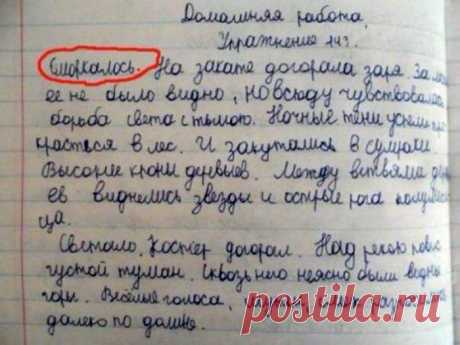 Домашняя работа.
Упражнение 143.
Сморкалось. На закате догорала заря. За
ее не было видно, но всюду чувствовалась
борьба света с тьмою. Ночные тени
красться в лес. И закутались в сумраки
Высокие кроны деревьев. Между ветвями
ев виднелись звезды и острые рога
ца.
Светало. Костер догорал. Над рекою
густой туман. Сквозь него неясно были видны
горы. Весёлые голоса,
далеко по долине.
postila.ru